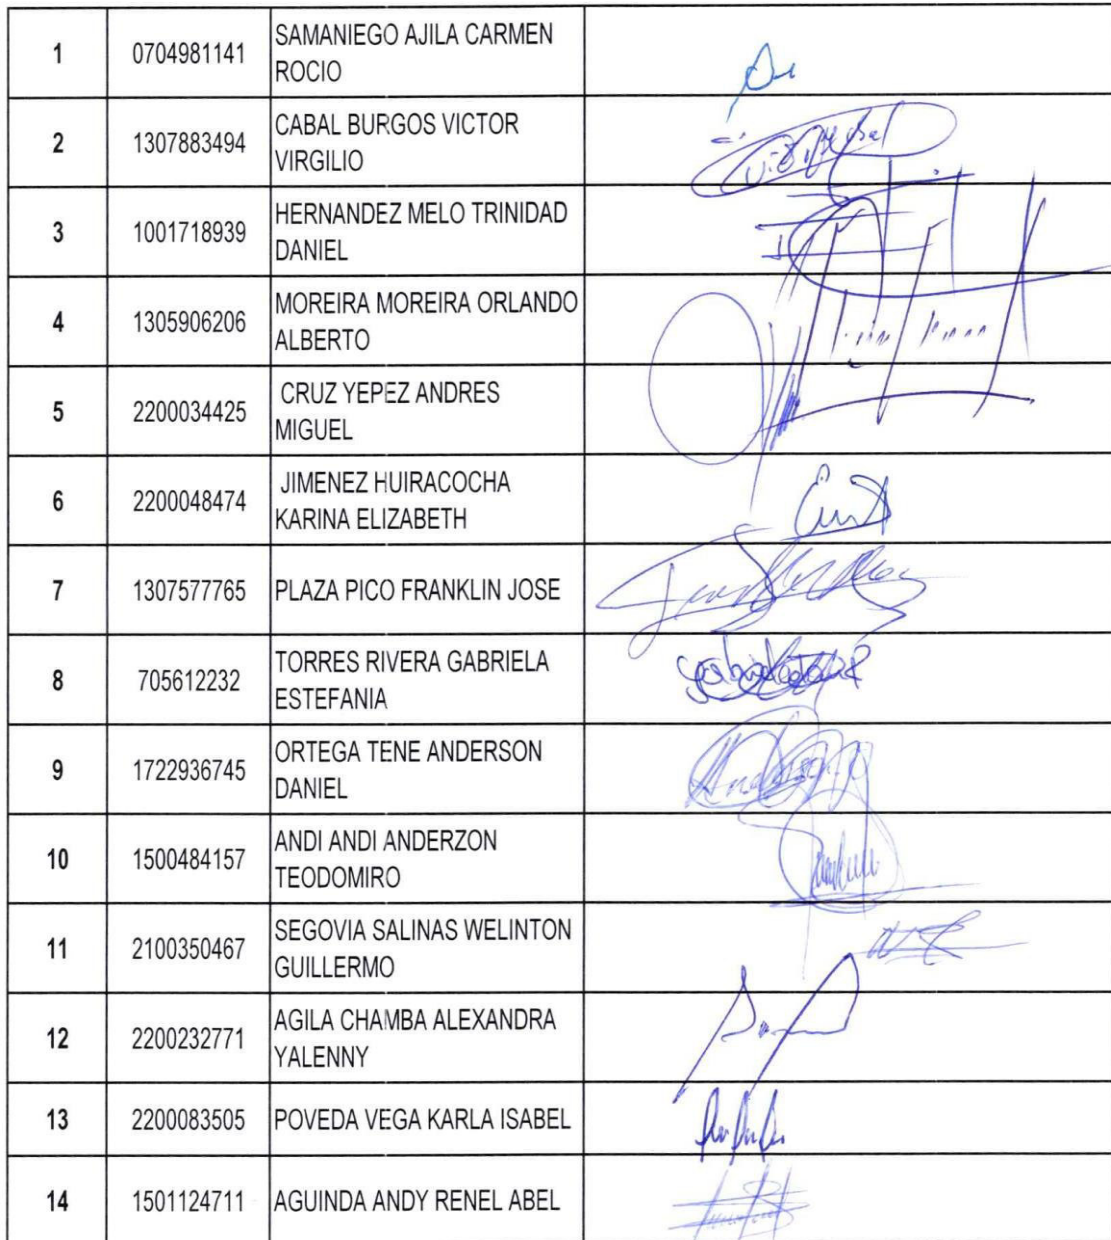 1 0704981141 SAMANIEGO AJILA CARMEN
ROCIO
2 1307883494 CABAL BURGOS VICTOR
VIRGILIO
3 1001718939 HERNANDEZ MELO TRINIDAD
DANIEL
4 1305906206 MOREIRA MOREIRA ORLANDO
ALBERTO
5 2200034425 CRUZ YEPEZ ANDRES
MIGUEL
6 2200048474 JIMENEZ HUIRACOCHA
KARINA ELIZABETH
7 1307577765 PLAZA PICO FRANKLIN JOSE
8 705612232 TORRES RIVERA GABRIELA
ESTEFANIA
9 1722936745 ORTEGA TENE ANDERSON
DANIEL
10 1500484157 ANDI ANDI ANDERZON
TEODOMIRO
11 2100350467 SEGOVIA SALINAS WELINTON
GUILLERMO
12 2200232771 AGILA CHAMBA ALEXANDRA
YALENNY
13 2200083505 POVEDA VEGA KARLA ISABEL
14 1501124711 AGUINDA ANDY RENEL ABEL